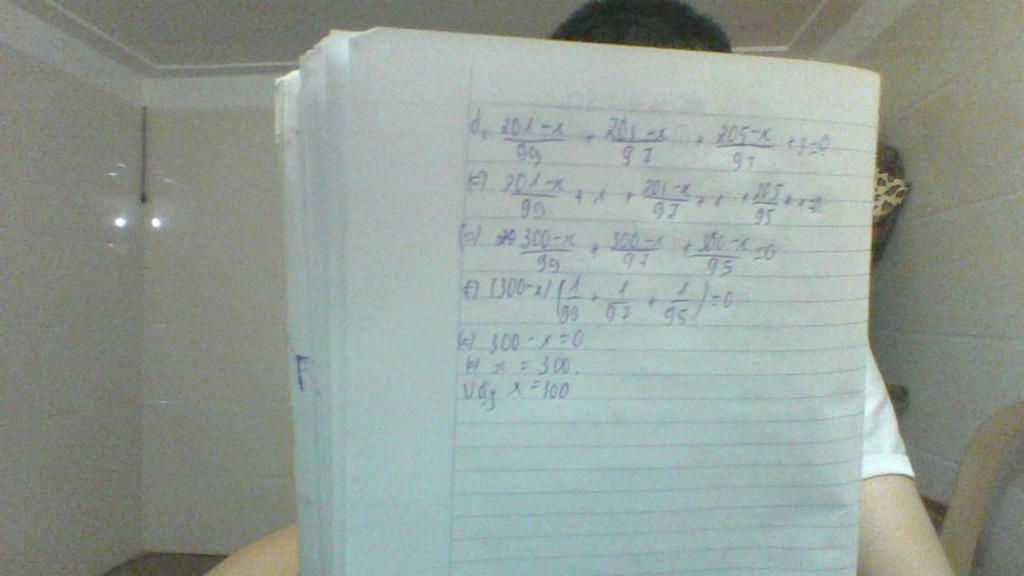 d, (201-x)/99 + (203-x)/97 + (205-x)/95 + 3=0
(=) (201-x)/99 + 1 + (203-x)/97 + 1 + 205/95 + 1=0
(=) (300-x)/99 + (300-x)/97 + (300-x)/95 =0
(=) (300-x) (1/99 + 1/97 + 1/95) =0
(=) 300 - x =0
(=) x = 300.
Vậy x =300